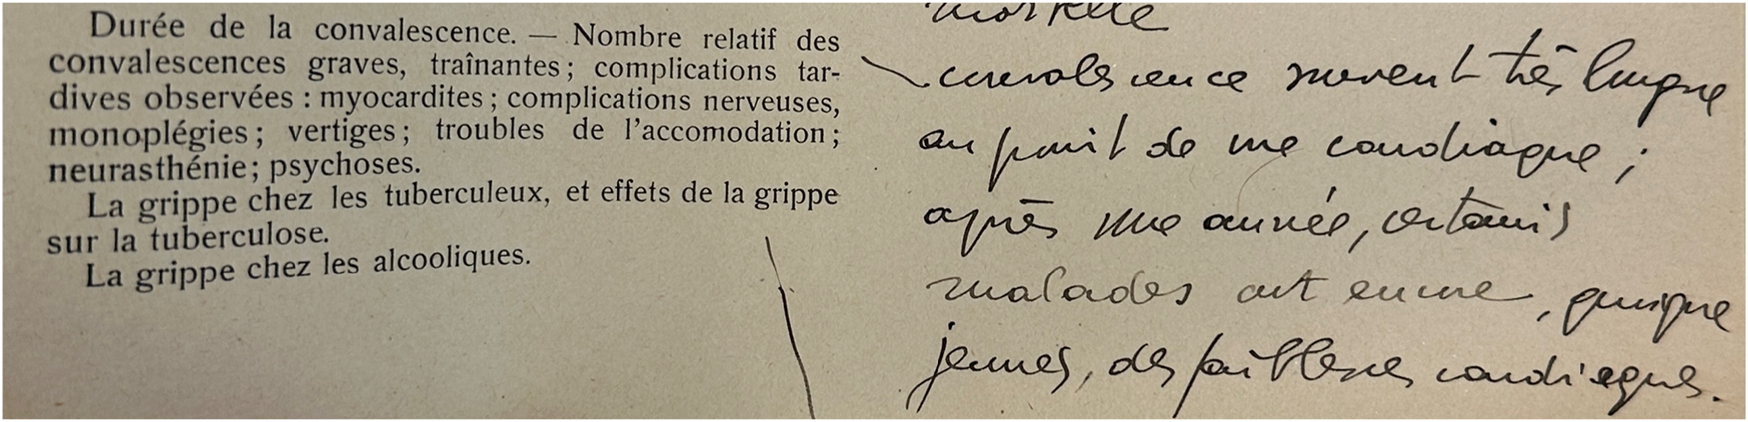 Durée de la convalescence. — Nombre relatif des
convalescences graves, traînantes; complications tar-
dives observées : myocardites; complications nerveuses,
monoplégies; vertiges; troubles de l'accomodation;
neurasthénie; psychoses.
La grippe chez les tuberculeux, et effets de la grippe
sur la tuberculose.
La grippe chez les alcooliques.
mortelle
convalescence souvent très longue
au point de vue cardiaque ;
après une année, certains
malades ont encore, quoique
jeunes, des faiblesses cardiaques.